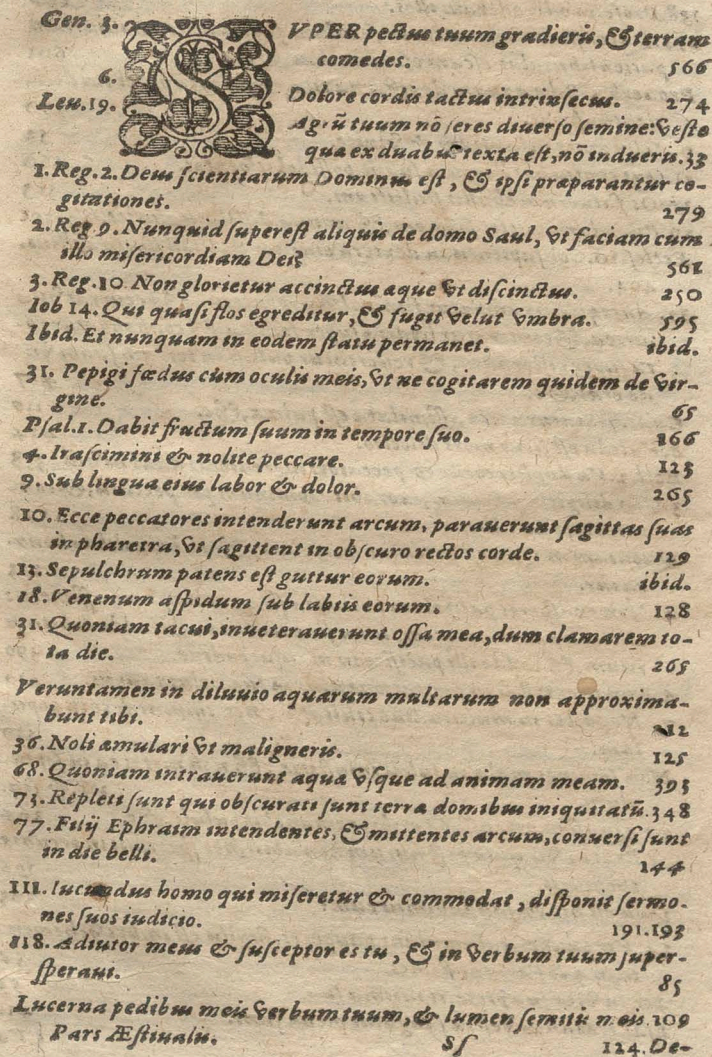 Gen. 3. SVPER pectus tuum gradieris, & terram
comedes. 566
6. Dolore cordis tactus intrinſecus. 274
Leu.19. Agrū tuum nō ſeres diuerſo ſemine: veſte
quæ ex duabus texta eſt, nō indueris. 33
1.Reg.2. Deus ſcientiarum Dominus eſt, & ipſi præparantur co-
gitationes. 279
2.Reg.9. Nunquid ſupereſt aliquis de domo Saul, vt faciam cum
illo miſericordiam Dei? 561
3.Reg.10. Non glorietur accinctus æque vt diſcinctus. 250
Iob 14. Qui quaſi flos egreditur, & fugit velut vmbra. 595
Ibid. Et nunquam in eodem ſtatu permanet. ibid.
31. Pepigi fœdus cùm oculis meis, vt ne cogitarem quidem de vir-
gine. 65
Pſal.1. Dabit fructum ſuum in tempore ſuo. 166
4. Iraſcimini & nolite peccare. 123
9. Sub lingua eius labor & dolor. 265
10. Ecce peccatores intenderunt arcum, parauerunt ſagittas ſuas
in pharetra, vt ſagittent in obſcuro rectos corde. 129
13. Sepulchrum patens eſt guttur eorum. ibid.
18. Venenum aſpidum ſub labiis eorum. 128
31. Quoniam tacui, inueterauerunt oſſa mea, dum clamarem to-
ta die. 265
Veruntamen in diluuio aquarum multarum non approxima-
bunt tibi. 212
36. Noli æmulari vt maligneris. 125
68. Quoniam intrauerunt aquæ vſque ad animam meam. 393
73. Repleti ſunt qui obſcurati ſunt terræ domibus iniquitatū. 348
77. Filij Ephraim intendentes, & mittentes arcum, conuerſi ſunt
in die belli. 144
111. Iucundus homo qui miſeretur & commodat, diſponit ſermo-
nes ſuos iudicio. 191.193
118. Adiutor meus & ſuſceptor es tu, & in verbum tuum ſuper-
ſperaui. 85
Lucerna pedibus meis verbum tuum, & lumen ſemitis meis. 109
Pars Æſtiualis. Sſ 124. De-